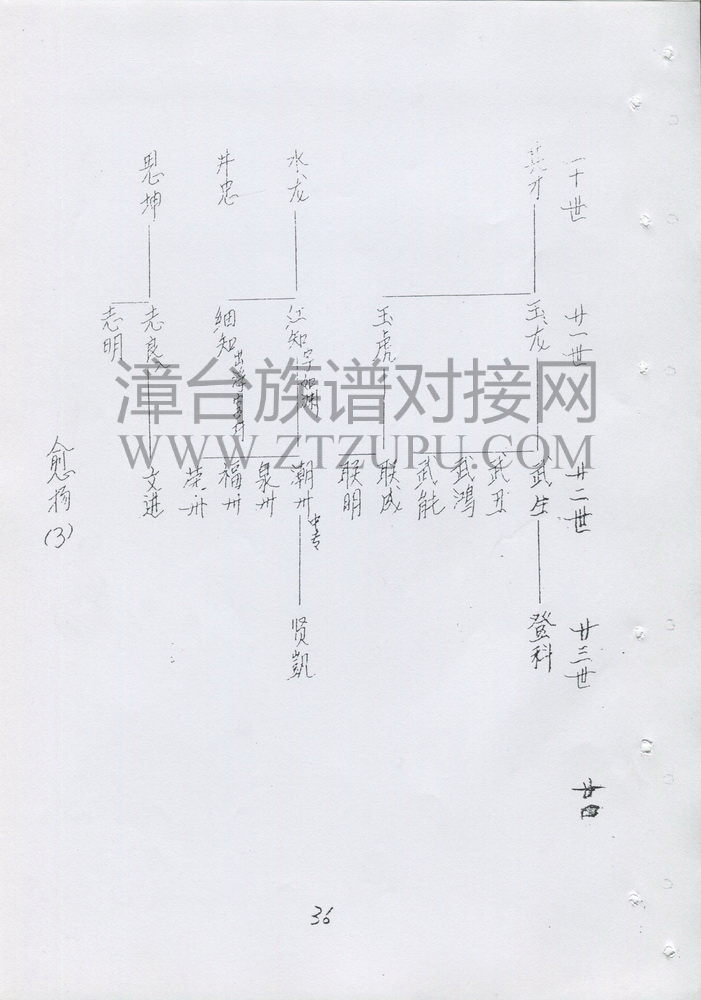 廿一世
廿二世
廿三世
廿四
玉龙
武生
武丑
武鸿
武能
登科
玉虎
联成
联明
水龙
红知
潮州 中专
泉州
福州
荣州
贤凯
井忠
细知
思坤
志良
志明
文进
愈扬(3)
36
漳台族谱对接网
WWW.ZTZUPU.COM